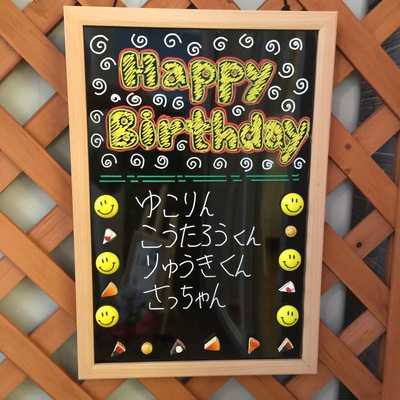 Happy
Birthday
ゆこりん
こうたろうくん
りゅうきくん
さっちゃん